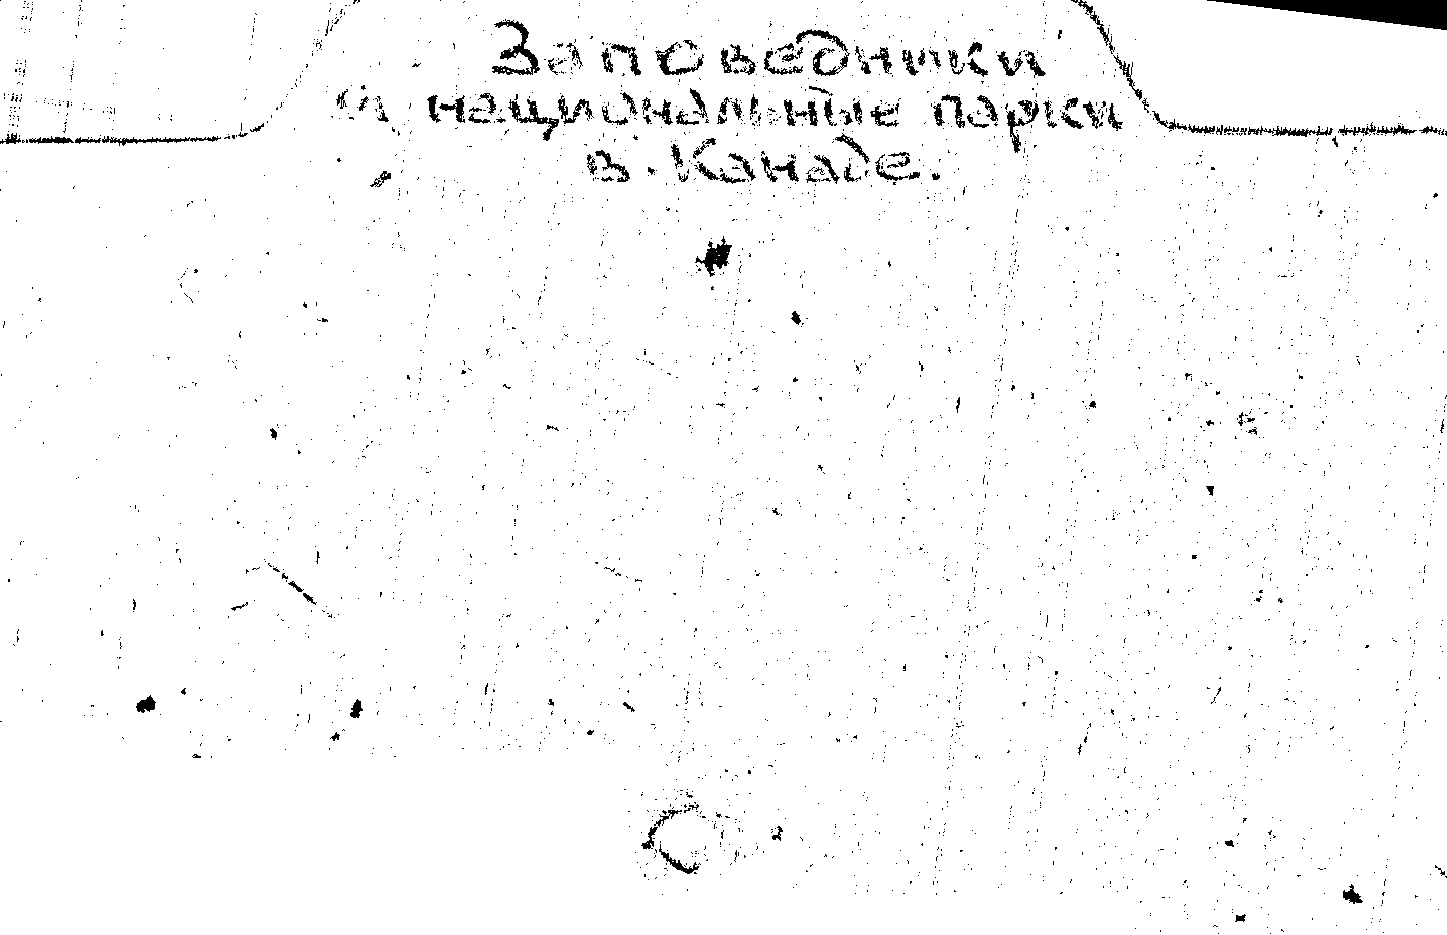 Заповедники
и национальные парки
в Канаде.